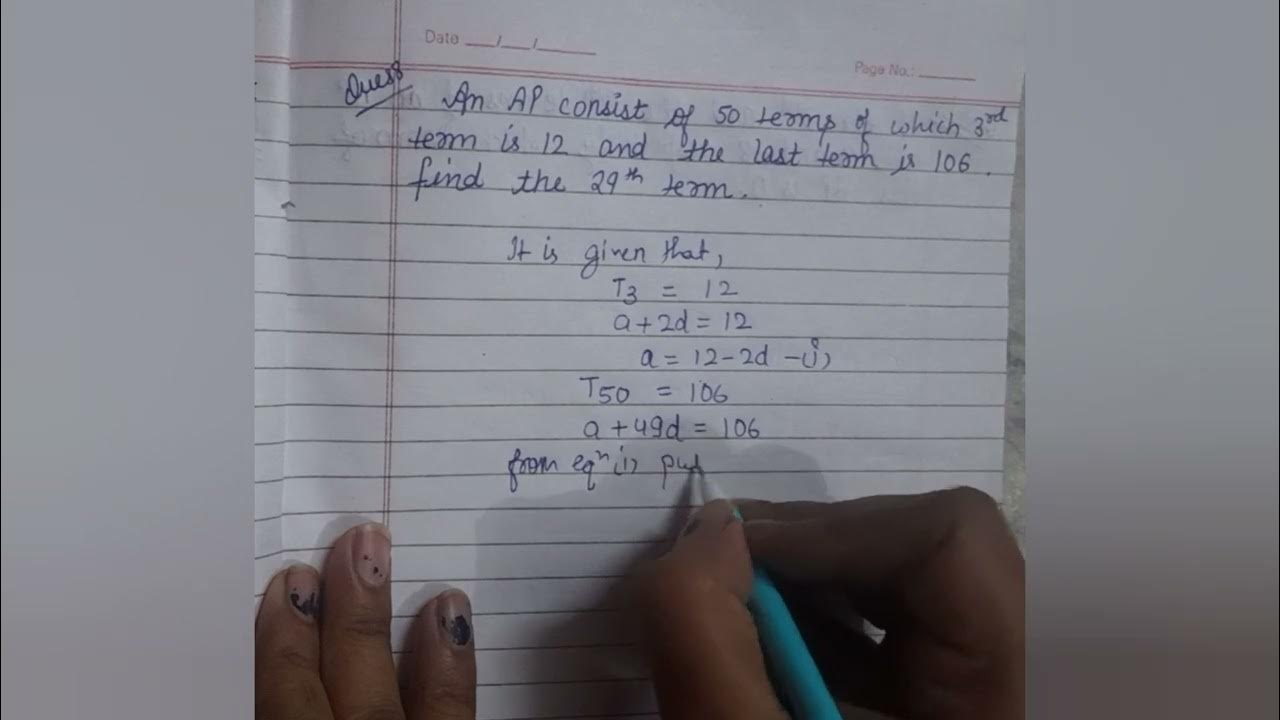 Date __/__/____
Page No.: ____
Ques
An AP consist of 50 terms of which 3rd
term is 12 and the last term is 106.
find the 29th term.
It is given that,
T3 = 12
a + 2d = 12
a = 12 - 2d -(i)
T50 = 106
a + 49d = 106
from eqn (i) put